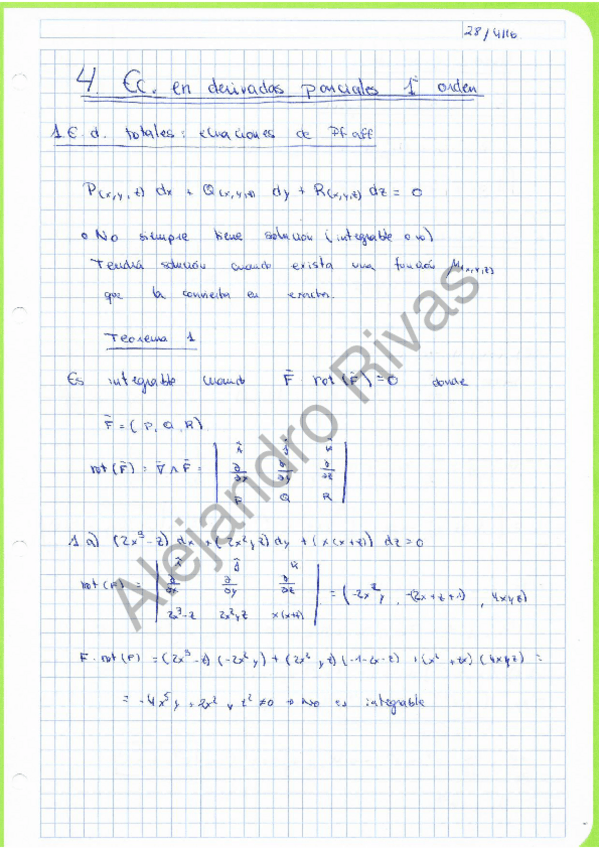 28/4/16
4 Ec. en derivadas parciales 1er orden
1. E. d. totales: ecuaciones de Pfaff
P(x,y,z) dx + Q(x,y,z) dy + R(x,y,z) dz = 0
o No siempre tiene solución (integrable o no)
Tendrá solución cuando exista una función μ(x,y,z)
que la convierta en exacta.
Teorema 1
Es integrable cuando F̄ rot(F̄) = 0 donde
F̄ = (P, Q, R)
rot(F̄) = ∇̄ ∧ F̄ = | î ĵ k̂
∂/∂x ∂/∂y ∂/∂z
P Q R |
1 a) (2x³ - z) dx + (2x²yz) dy + (x(x+z)) dz = 0
rot(F) = | î ĵ k̂
∂/∂x ∂/∂y ∂/∂z
2x³-z 2x²yz x(x+z) | = (-2x²y, -(2x+z+1), 4xyz)
F · rot(F) = (2x³-z)(-2x²y) + (2x²yz)(-1-2x-z) + (x²+zx)(4xyz) =
= -4x⁵y + 2x²yz² ≠ 0 → No es integrable
Alejandro Rivas